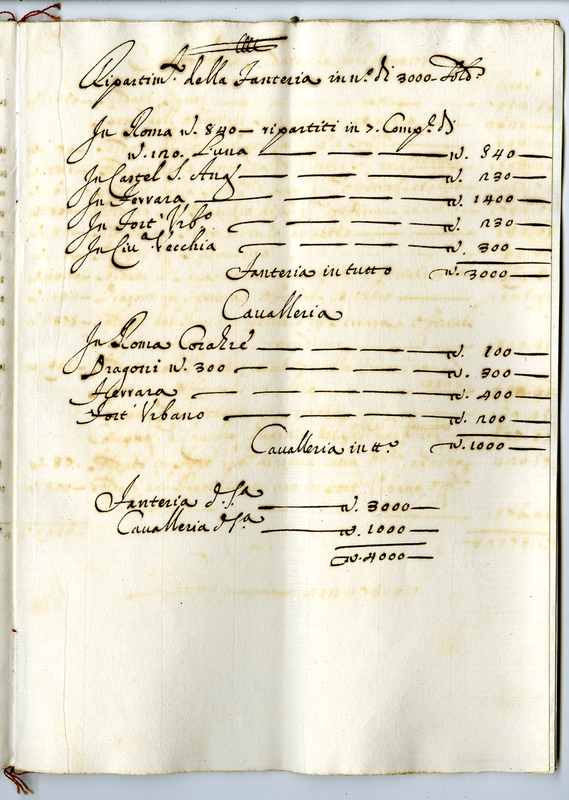 Ripartim.to della Fanteria in n.o di 3000 Sold.i
In Roma n. 840 ripartiti in 7. Comp.e di
n. 120. l'una n. 840
In Castel S. Ang.o n. 230
In Ferrara n. 1400
In Fort' Urb.o n. 230
In Ciu.a Vecchia n. 300
Fanteria in tutto n. 3000
Cavalleria
In Roma Corazze n. 100
Dragoni n. 300 n. 300
Ferrara n. 400
Fort' Urbano n. 200
Cavalleria in tt.o n. 1000
Fanteria d.s.a n. 3000
Cavalleria d.s.a n. 1000
n. 4000